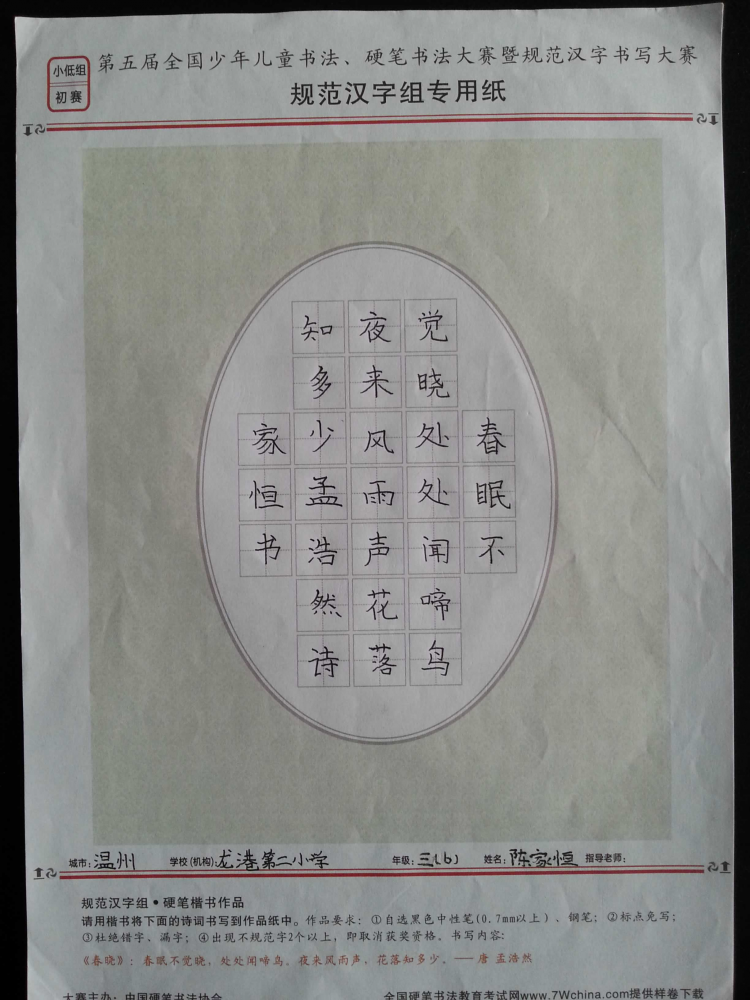 小低组
初赛
第五届全国少年儿童书法、硬笔书法大赛暨规范汉字书写大赛
规范汉字组专用纸
春眠不
觉晓处处闻啼鸟
夜来风雨声花落
知多少孟浩然诗
家恒书
城市：温州 学校(机构)：龙港第二小学 年级：三(6) 姓名：陈家恒 指导老师：
规范汉字组•硬笔楷书作品
请用楷书将下面的诗词书写到作品纸中。作品要求：①自选黑色中性笔(0.7mm以上)、钢笔；②标点免写；
③杜绝错字、漏字；④出现不规范字2个以上，即取消获奖资格。书写内容：
《春晓》：春眠不觉晓，处处闻啼鸟。夜来风雨声，花落知多少。——唐 孟浩然
大赛主办：中国硬笔书法协会 全国硬笔书法教育考试网www.7Wchina.com提供样卷下载